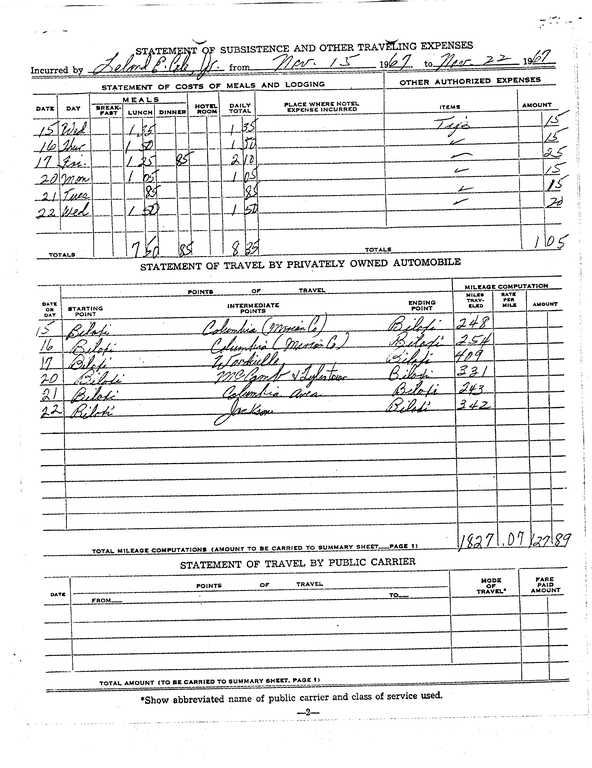 STATEMENT OF SUBSISTENCE AND OTHER TRAVELING EXPENSES
Incurred by Leland E. Cole, Jr. from Nov. 15 1967 to Nov. 22 1967
STATEMENT OF COSTS OF MEALS AND LODGING OTHER AUTHORIZED EXPENSES
DATE DAY MEALS BREAK-FAST LUNCH DINNER HOTEL ROOM DAILY TOTAL PLACE WHERE HOTEL EXPENSE INCURRED ITEMS AMOUNT
15 Wed 1 35 1 35 Tips 15
16 Thur 1 50 1 50 ✓ 15
17 Fri. 1 25 85 2 10 ✓ 25
20 Mon 1 05 1 05 ✓ 15
21 Tues 85 85 ✓ 15
22 Wed 1 50 1 50 ✓ 20
TOTALS 7 50 85 8 35 TOTALS 1 05
STATEMENT OF TRAVEL BY PRIVATELY OWNED AUTOMOBILE
POINTS OF TRAVEL MILEAGE COMPUTATION
DATE OR DAY STARTING POINT INTERMEDIATE POINTS ENDING POINT MILES TRAV-ELED RATE PER MILE AMOUNT
15 Biloxi Columbia (Marion Co) Biloxi 248
16 Biloxi Columbia (Marion Co) Biloxi 254
17 Biloxi Biloxi 409
20 Biloxi McComb & Tylertown Biloxi 331
21 Biloxi Columbia area Biloxi 243
22 Biloxi Jackson Biloxi 342
TOTAL MILEAGE COMPUTATIONS (AMOUNT TO BE CARRIED TO SUMMARY SHEET PAGE 1) 1827 .07 127 89
STATEMENT OF TRAVEL BY PUBLIC CARRIER
DATE POINTS OF TRAVEL MODE OF TRAVEL* FARE PAID AMOUNT
FROM TO
TOTAL AMOUNT (TO BE CARRIED TO SUMMARY SHEET, PAGE 1)
*Show abbreviated name of public carrier and class of service used.
—2—